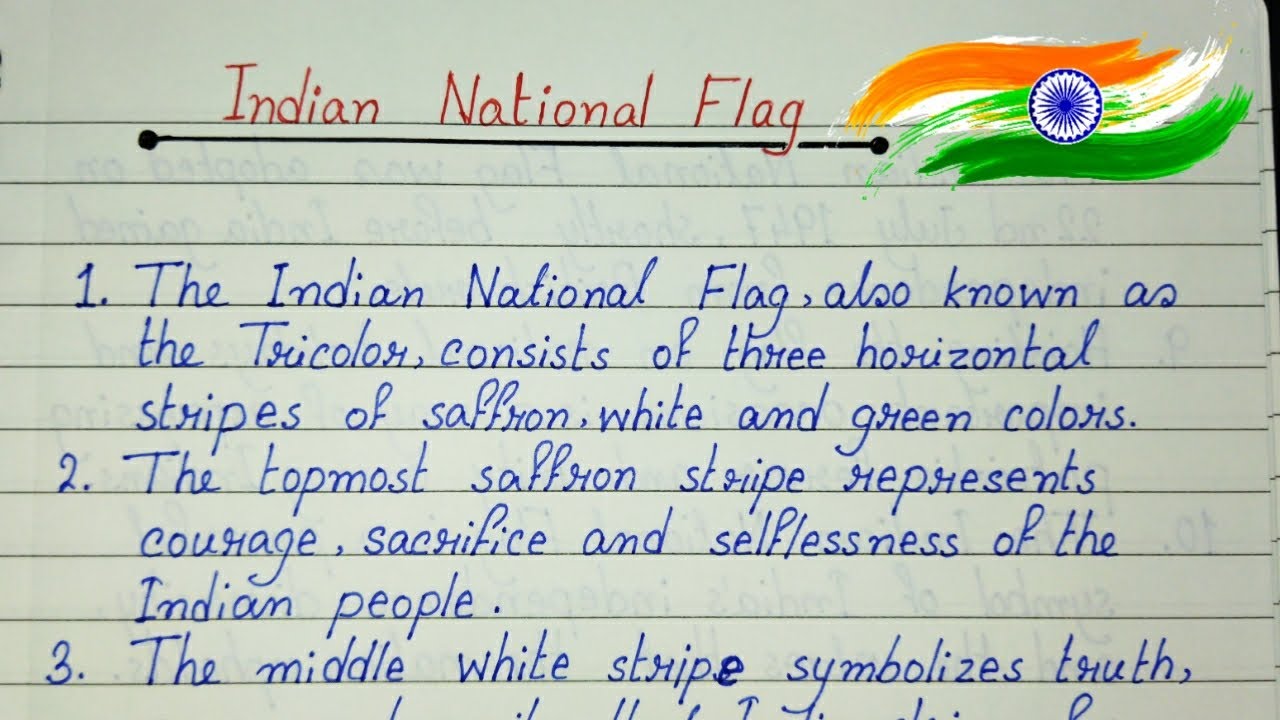 Indian National Flag
1. The Indian National Flag, also known as
the Tricolor, consists of three horizontal
stripes of saffron, white and green colors.
2. The topmost saffron stripe represents
courage, sacrifice and selflessness of the
Indian people.
3. The middle white stripe symbolizes truth,